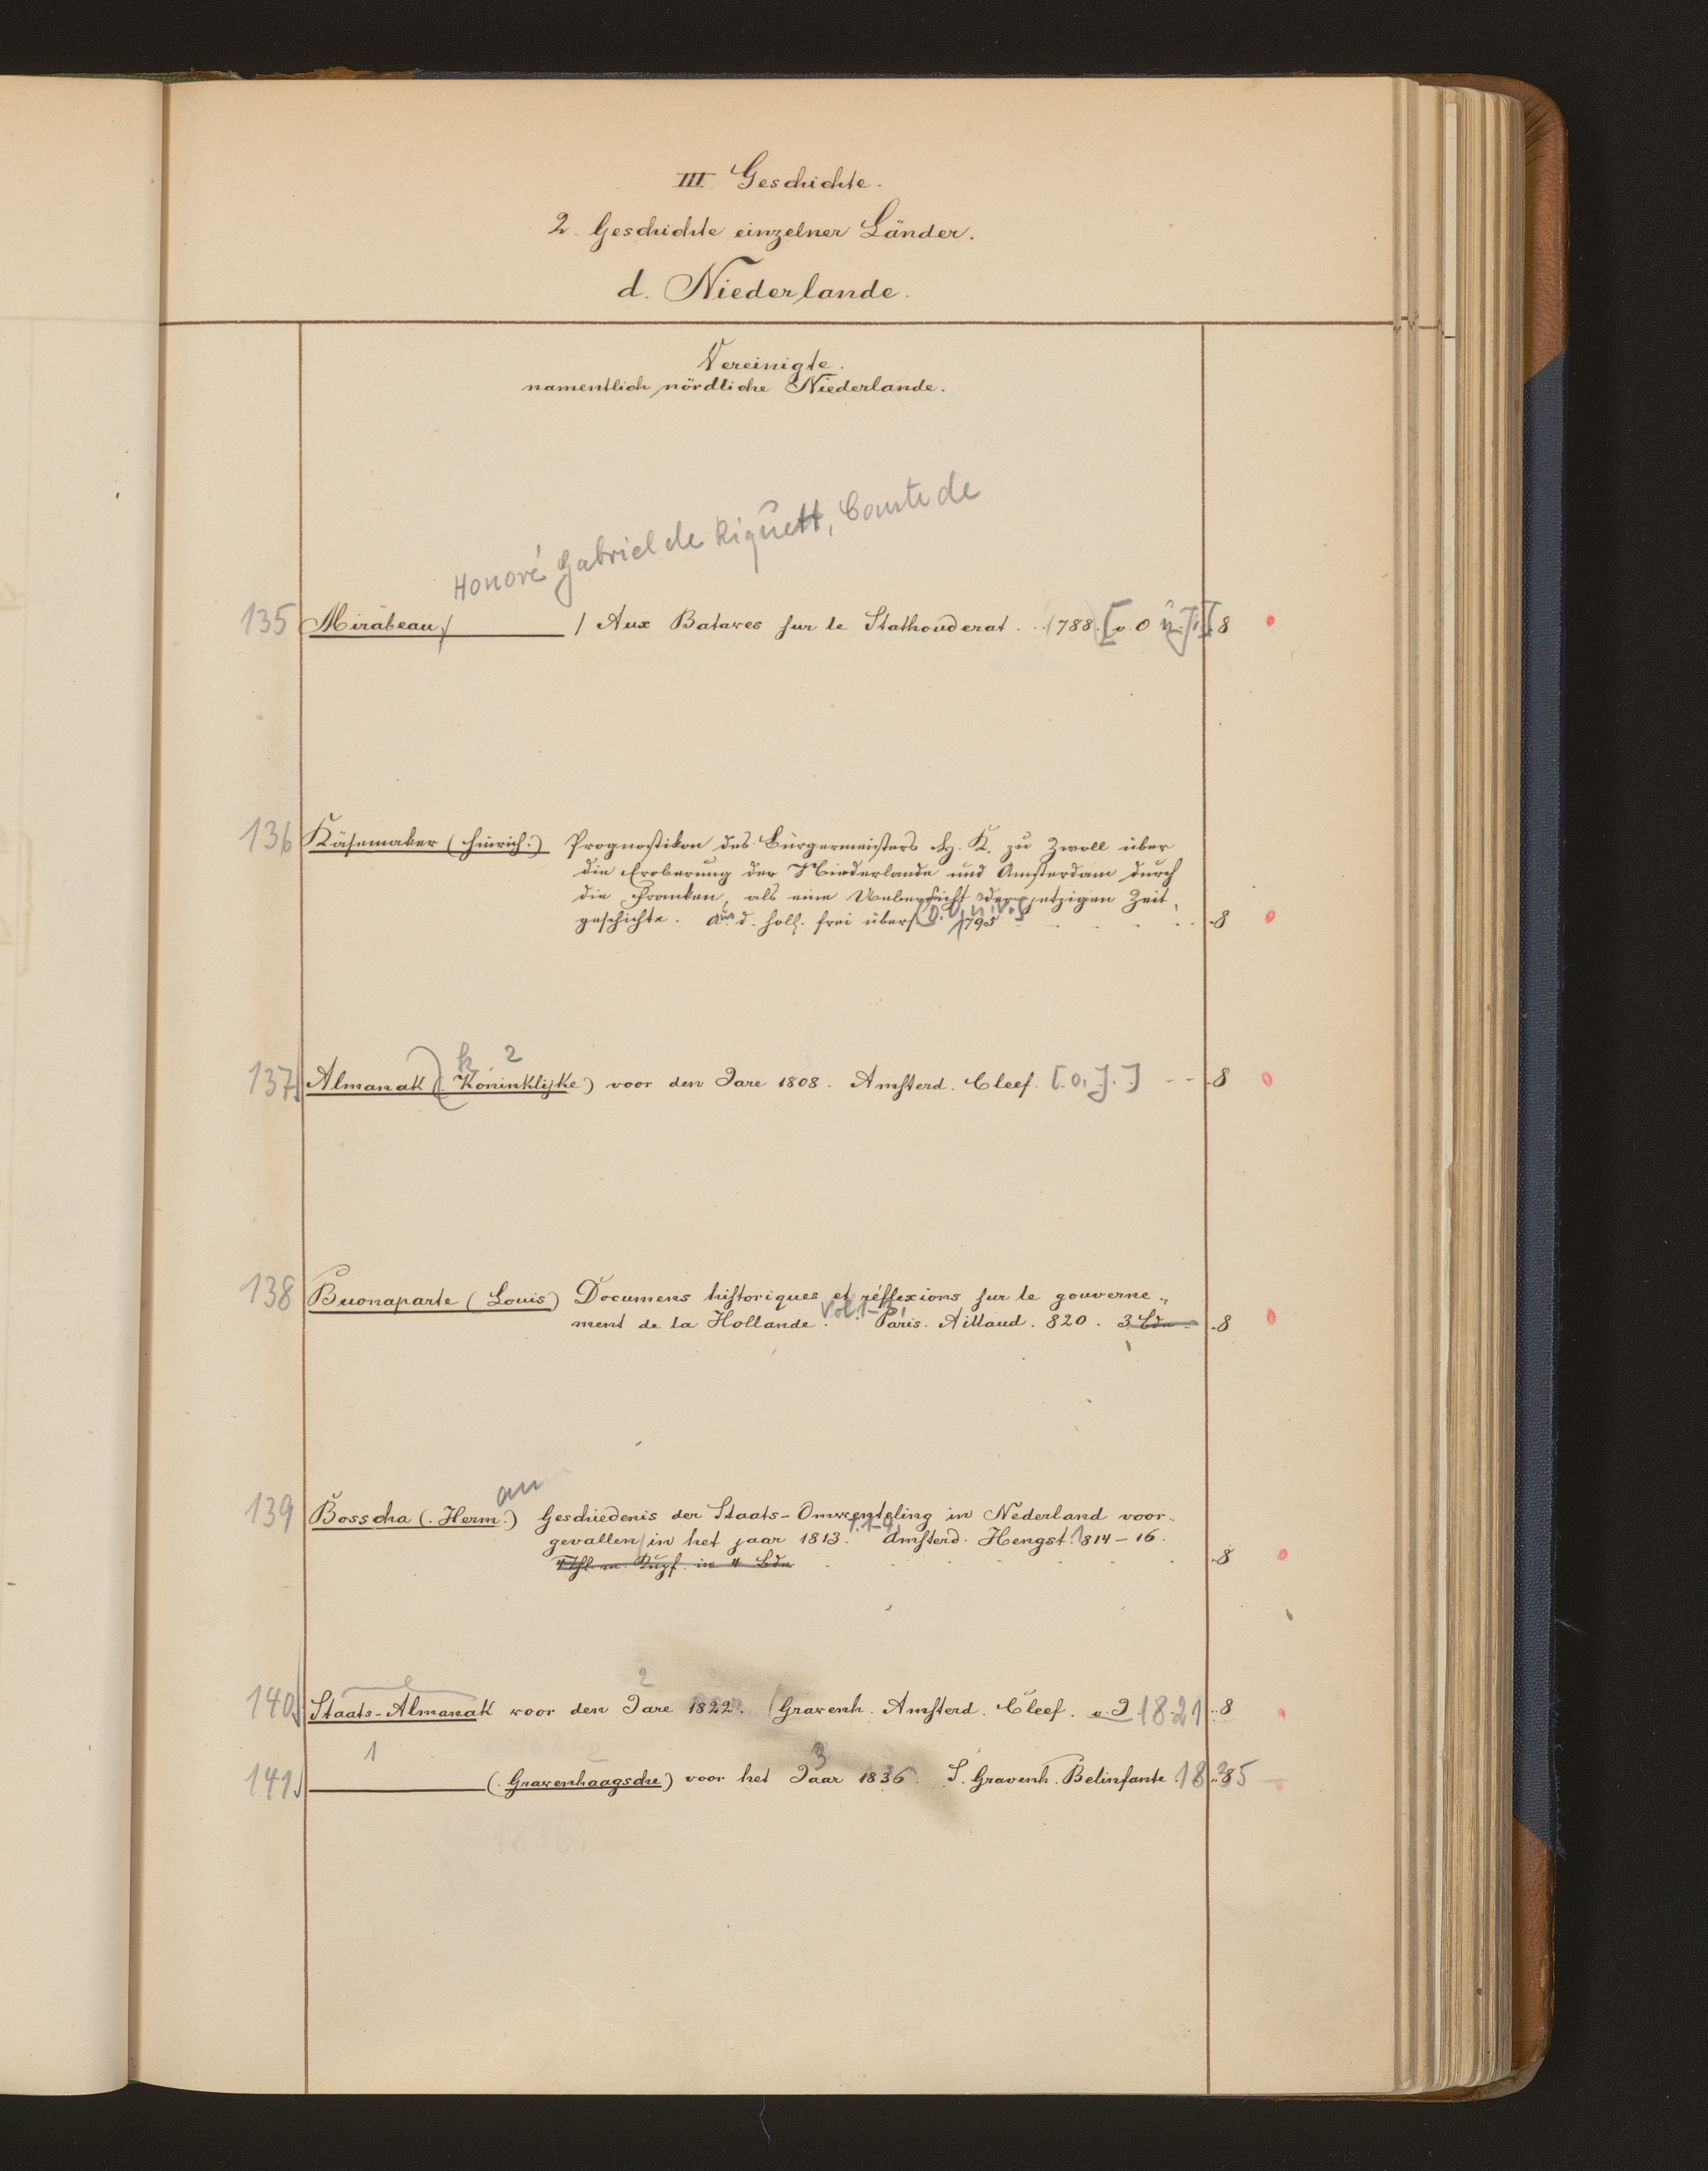 III. Geschichte.
2. Geschichte einzelner Länder.
d. Niederlande.
Vereinigte.
namentlich nördliche Niederlande.
Honoré Gabriel de Riquett, Comte de
135 Mirabeau / Aux Bataves sur le Stathouderat . . 1788. [o. O 8
136 Käsemaker (Hinrich.) Prognostikon des Bürgermeisters H. K. zu Zwoll über
die Eroberung der Niederlande und Amsterdam durch
die Franken, als eine Uebersicht der jetzigen Zeit
geschichte. Aus d. holl. frei übers. 1795 . . . . 8
k. 2
137. Almanak (Koninklijke) voor den Jare 1808. Amsterd. Cleef. [o. J.] - - 8
138 Buonaparte (Louis) Documens historiques et réflexions sur le gouverne„
ment de la Hollande. Vol. 1-3. Paris. Aillaud. 820. 3 Bde 8
an
139 Bosscha (Herm.) Geschiedenis der Staats-Omwenteling in Nederland voor„
gevallen in het jaar 1813. T. 1-4. Amsterd. Hengst. 1814-16.
4 Thl. m. Kupf. in 4 Bdn . . . . . 8
2
140. Staats-Almanak voor den Jare 1822. Gravenh. Amsterd. Cleef. o. J. 1821 8
1 3
141. (Gravenhaagsche) voor het Jaar 1836. S. Gravenh. Belinfante 1835 8